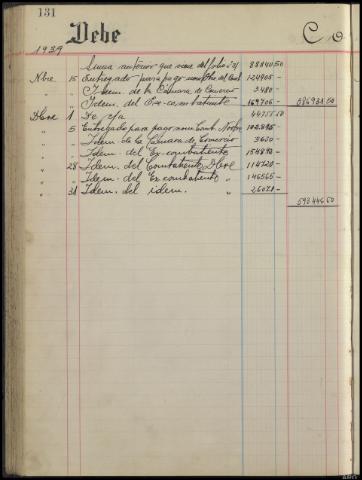 131
Debe Co
1939
Suma anterior que viene del folio 88840,50
Nbre 15 Entregado para pago 124905-
" " Idem. de la Cámara de Comercio 3480-
" " Idem. del Ex-combatiente 169706- 386931,50
Dbre 1 44755,50
" 5 Entregado para pago Comb. Nobre 102895-
" " Idem. de la Cámara de Comercio 3630-
" " Idem. del Ex-combatiente 154890-
" 28 Idem. del Combatiente Dbre 114720-
" " Idem. del Ex combatiente " 146565-
" 31 Idem. del idem. "